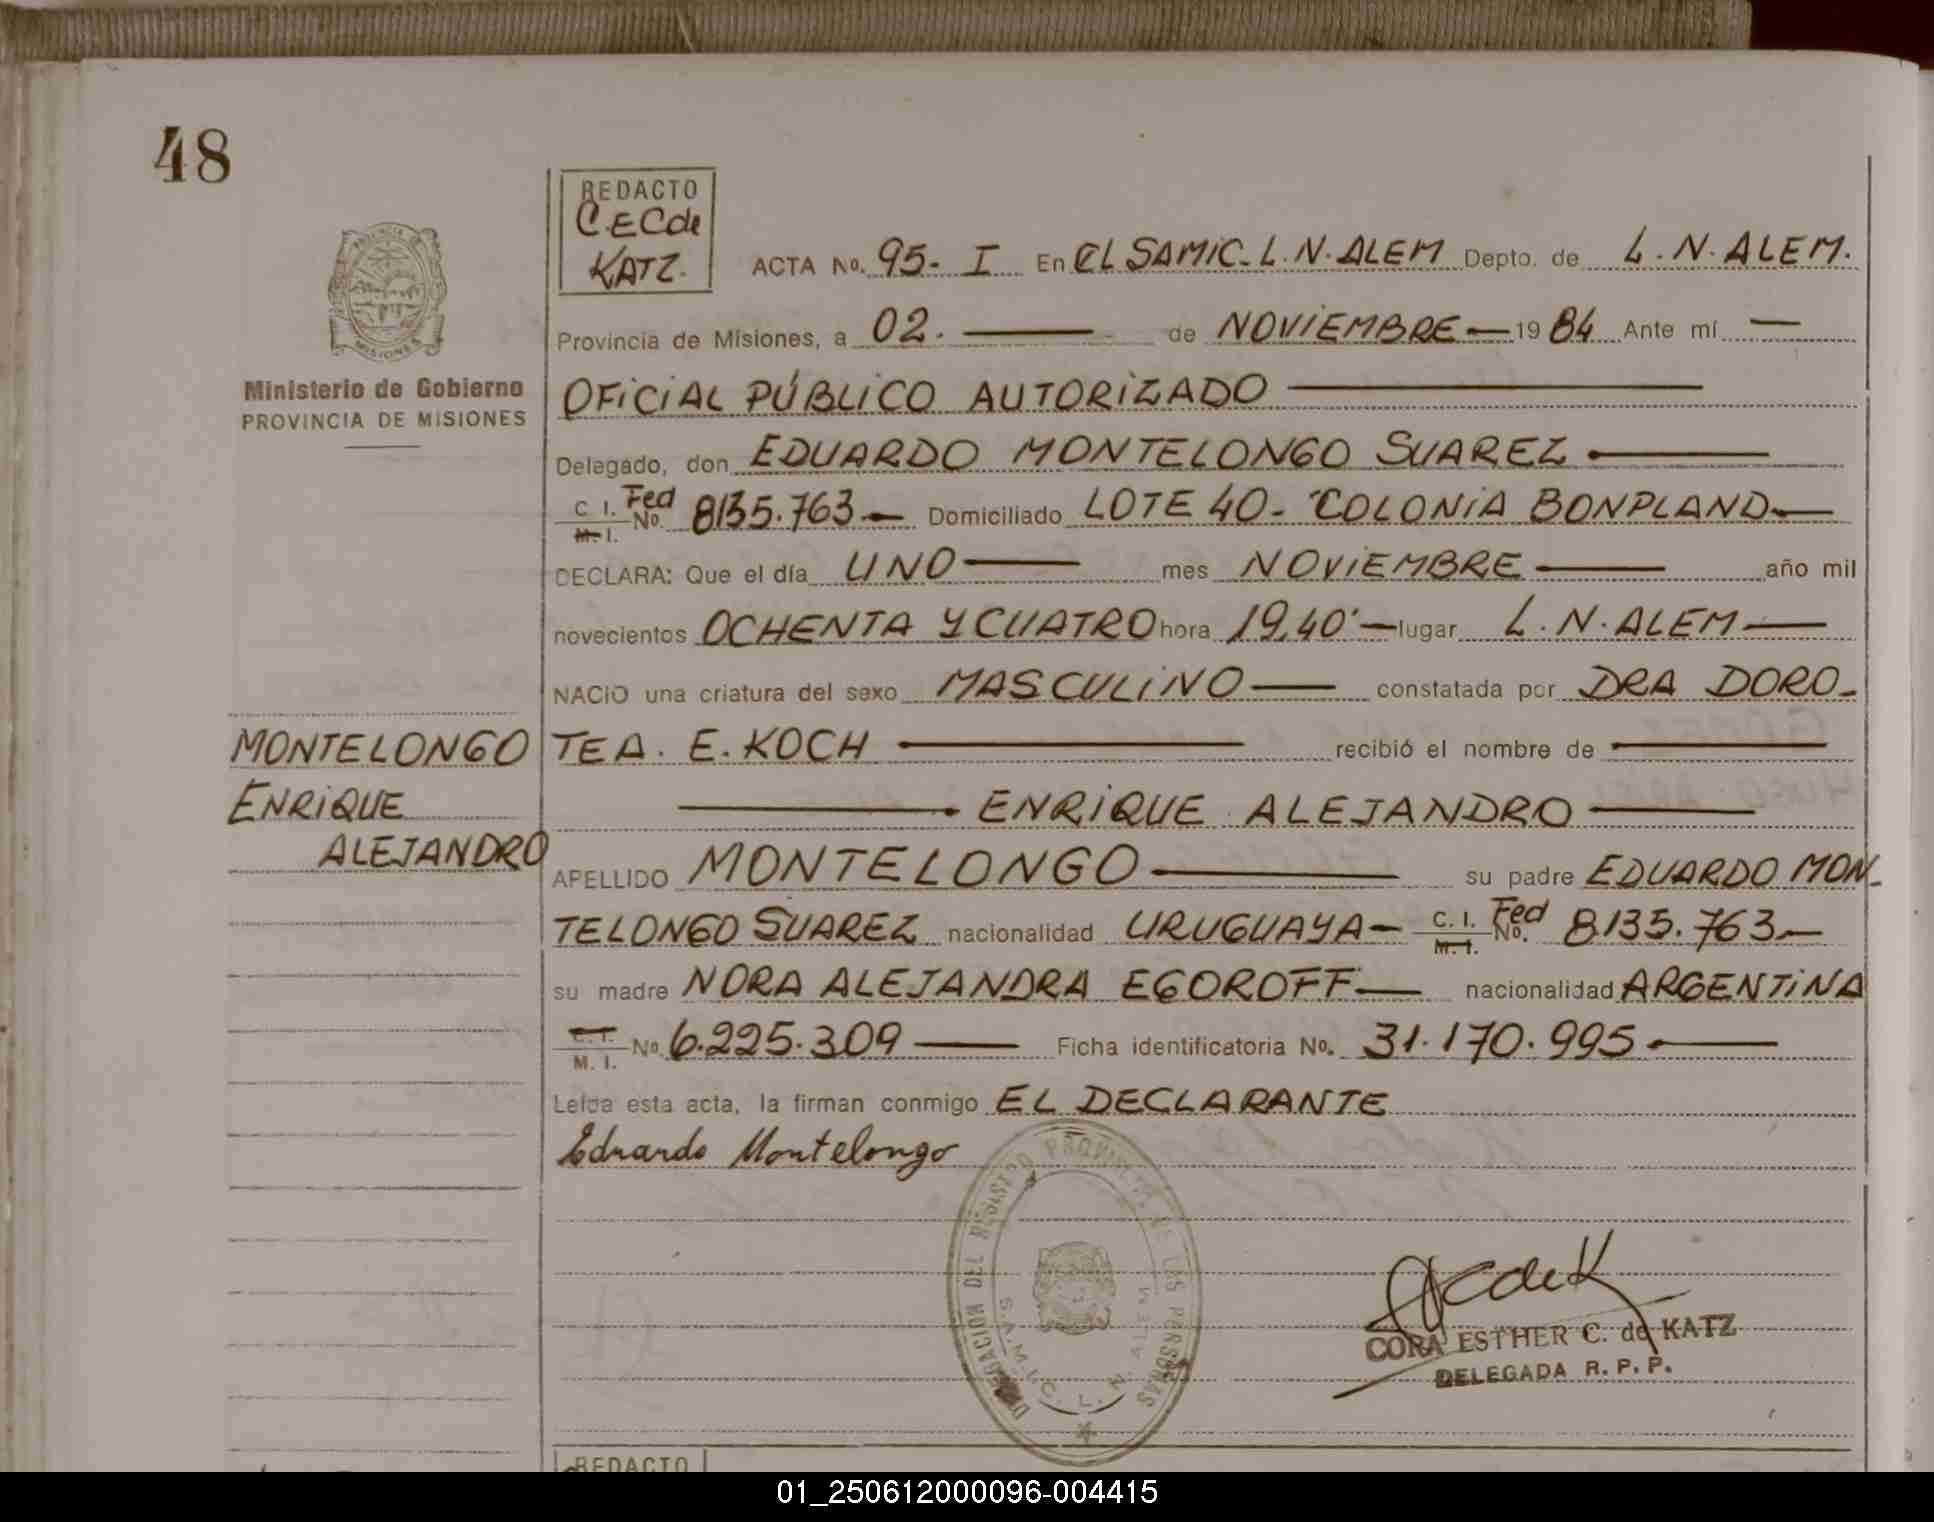 48
REDACTO
C.E.C de
KATZ.
ACTA No. 95- I En EL SAMIC. L.N. ALEM Depto. de L.N. ALEM.
Provincia de Misiones, a 02. de NOVIEMBRE 19 84 Ante mí
OFICIAL PÚBLICO AUTORIZADO
Delegado, don EDUARDO MONTELONGO SUAREZ
C. I. Fed
M. I. No. 8135.763 Domiciliado LOTE 40- COLONIA BONPLAND
DECLARA: Que el día UNO mes NOVIEMBRE año mil
novecientos OCHENTA Y CUATRO hora 19,40' lugar L.N. ALEM
NACIO una criatura del sexo MASCULINO constatada por DRA DORO-
TEA. E. KOCH recibió el nombre de
ENRIQUE ALEJANDRO
APELLIDO MONTELONGO su padre EDUARDO MON-
TELONGO SUAREZ nacionalidad URUGUAYA C. I. Fed
M. I. No. 8135.763
su madre NORA ALEJANDRA EGOROFF nacionalidad ARGENTINA
C. I.
M. I. No. 6.225.309 Ficha identificatoria No. 31.170.995
Leída esta acta, la firman conmigo EL DECLARANTE
Eduardo Montelongo
PROVINCIA DE
MISIONES
Ministerio de Gobierno
PROVINCIA DE MISIONES
MONTELONGO
ENRIQUE
ALEJANDRO
DELEGACION DEL REGISTRO PROVINCIAL DE LAS PERSONAS
S.A.M.I.C. L. N. ALEM
CdeK
CORA ESTHER C. de KATZ
DELEGADA R. P. P.
REDACTO
01_250612000096-004415